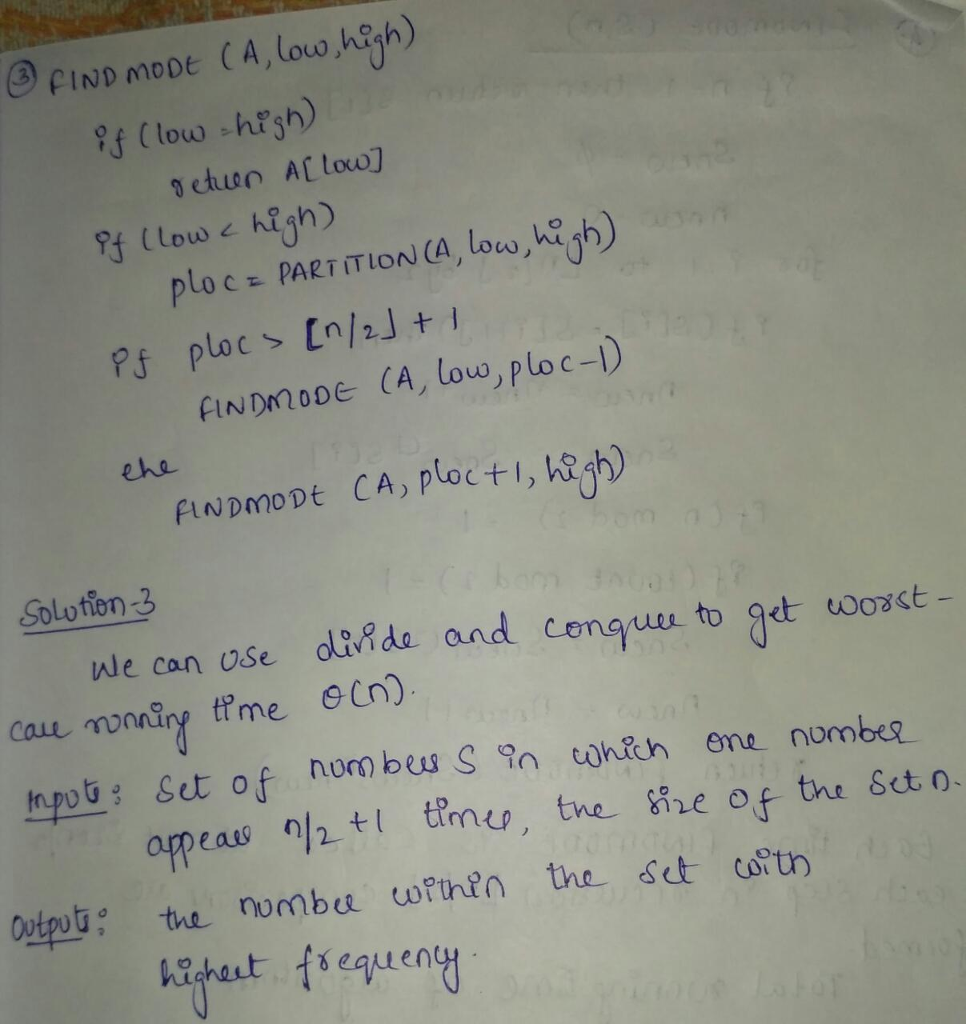 ③ FINDMODE (A, low, high)
if (low = high)
return A[low]
if (low < high)
ploc = PARTITION (A, low, high)
if ploc > ⌊n/2⌋ + 1
FINDMODE (A, low, ploc-1)
else
FINDMODE (A, ploc+1, high)
Solution-3
We can use divide and conquer to get worst-
case running time θ(n).
Inputs: Set of numbers S in which one number
appears n/2 +1 times, the size of the set n.
Outputs: the number within the set with
highest frequency.